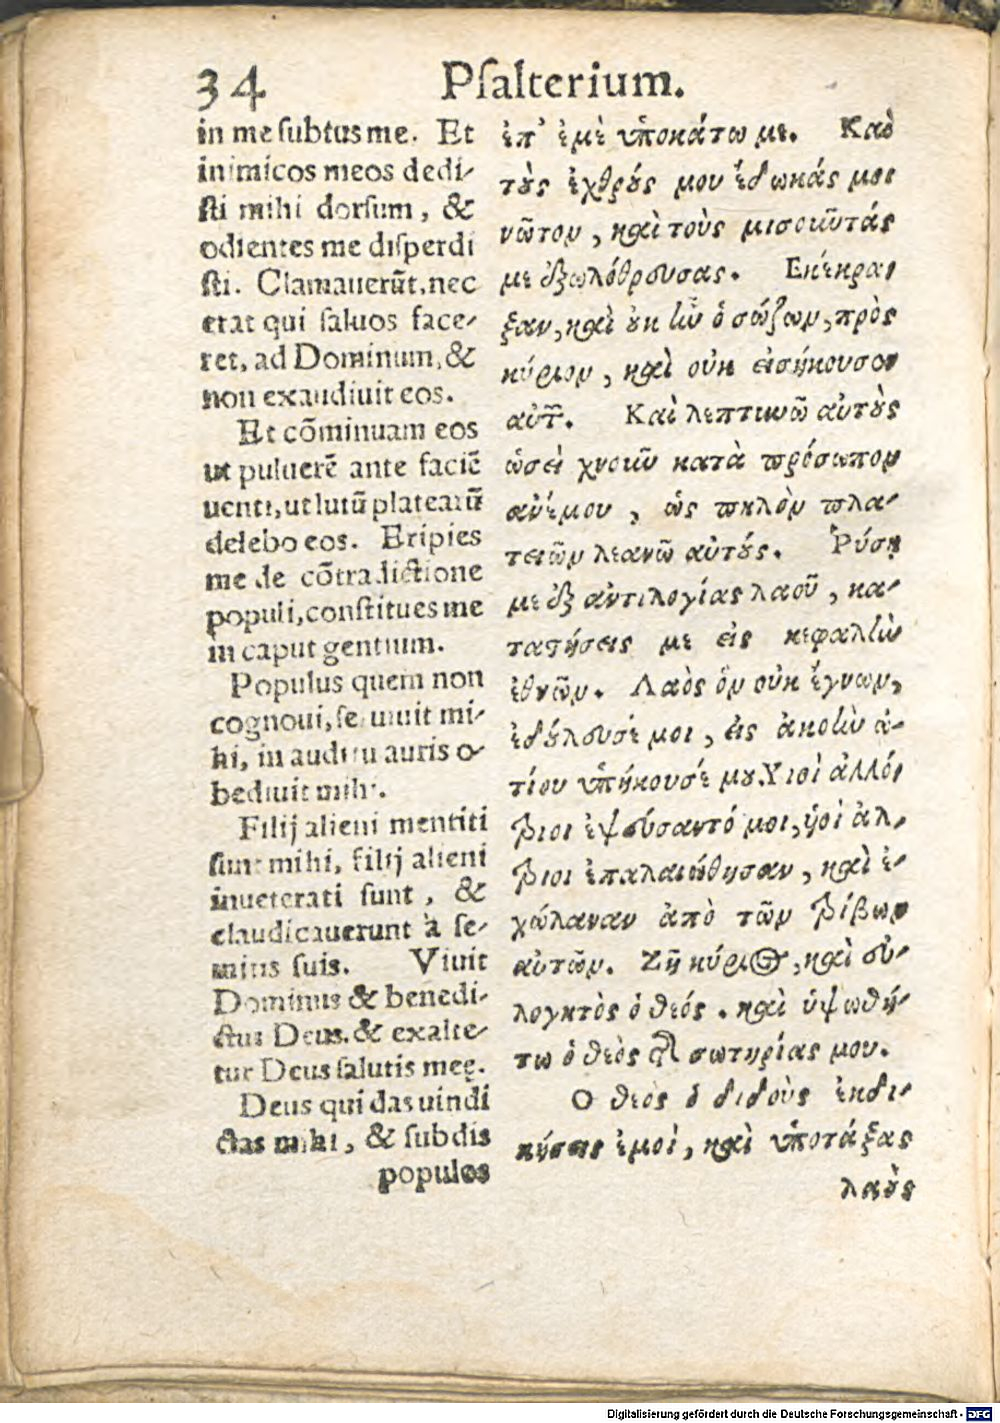 34 Psalterium.
in me subtus me. Et
inimicos meos dedi-
sti mihi dorsum, &
odientes me disperdi
sti. Clamauerũt, nec
erat qui saluos face-
ret, ad Dominum, &
non exaudiuit eos.
Et cõminuam eos
ut puluerẽ ante faciẽ
uenti, ut lutũ platearũ
delebo eos. Eripies
me de cõtradictione
populi, constitues me
in caput gentium.
Populus quem non
cognoui, seruiuit mi-
hi, in auditu auris o-
bediuit mihi.
Filij alieni mentiti
sunt mihi, filij alieni
inueterati sunt, &
claudicauerunt à se-
mitis suis. Viuit
Dominus & benedi-
ctus Deus, & exalte-
tur Deus salutis meę.
Deus qui das uindi
ctas mihi, & subdis
populos
ἐπ' ἐμὲ ὑποκάτω με. Καὶ
τοὺς ἐχθρούς μου ἔδωκάς μοι
νῶτον, καὶ τοὺς μισοῦντάς
με ἐξωλόθρευσας. Εκέκρα-
ξαν, καὶ οὐκ ἦν ὁ σώζων, πρὸς
κύριον, καὶ οὐκ εἰσήκουσεν
αὐτῶν. Καὶ λεπτυνῶ αὐτοὺς
ὡσεὶ χνοῦν κατὰ πρόσωπον
ἀνέμου, ὡς πηλὸν πλα-
τειῶν λεανῶ αὐτούς. Ῥύσῃ
με ἐξ ἀντιλογίας λαοῦ, κα-
ταστήσεις με εἰς κεφαλὴν
ἐθνῶν. Λαὸς ὃν οὐκ ἔγνων,
ἐδούλευσέ μοι, εἰς ἀκοὴν ὠ-
τίου ὑπήκουσέ μου. Υἱοὶ ἀλλό-
τριοι ἐψεύσαντό μοι, υἱοὶ ἀλ-
τριοι ἐπαλαιώθησαν, καὶ ἐ-
χώλαναν ἀπὸ τῶν τρίβων
αὐτῶν. Ζῇ κύριος, καὶ εὐ-
λογητὸς ὁ θεός. καὶ ὑψωθή-
τω ὁ θεὸς τῆς σωτηρίας μου.
Ο θεὸς ὁ διδοὺς ἐκδι-
κήσεις ἐμοὶ, καὶ ὑποτάξας
λαοὺς
Digitalisierung gefördert durch die Deutsche Forschungsgemeinschaft - DFG